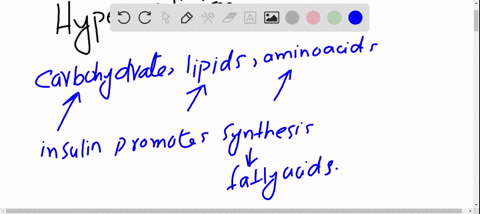 Hype
carbohydrate, lipids, aminoacids
insulin promotes synthesis
fattyacids.